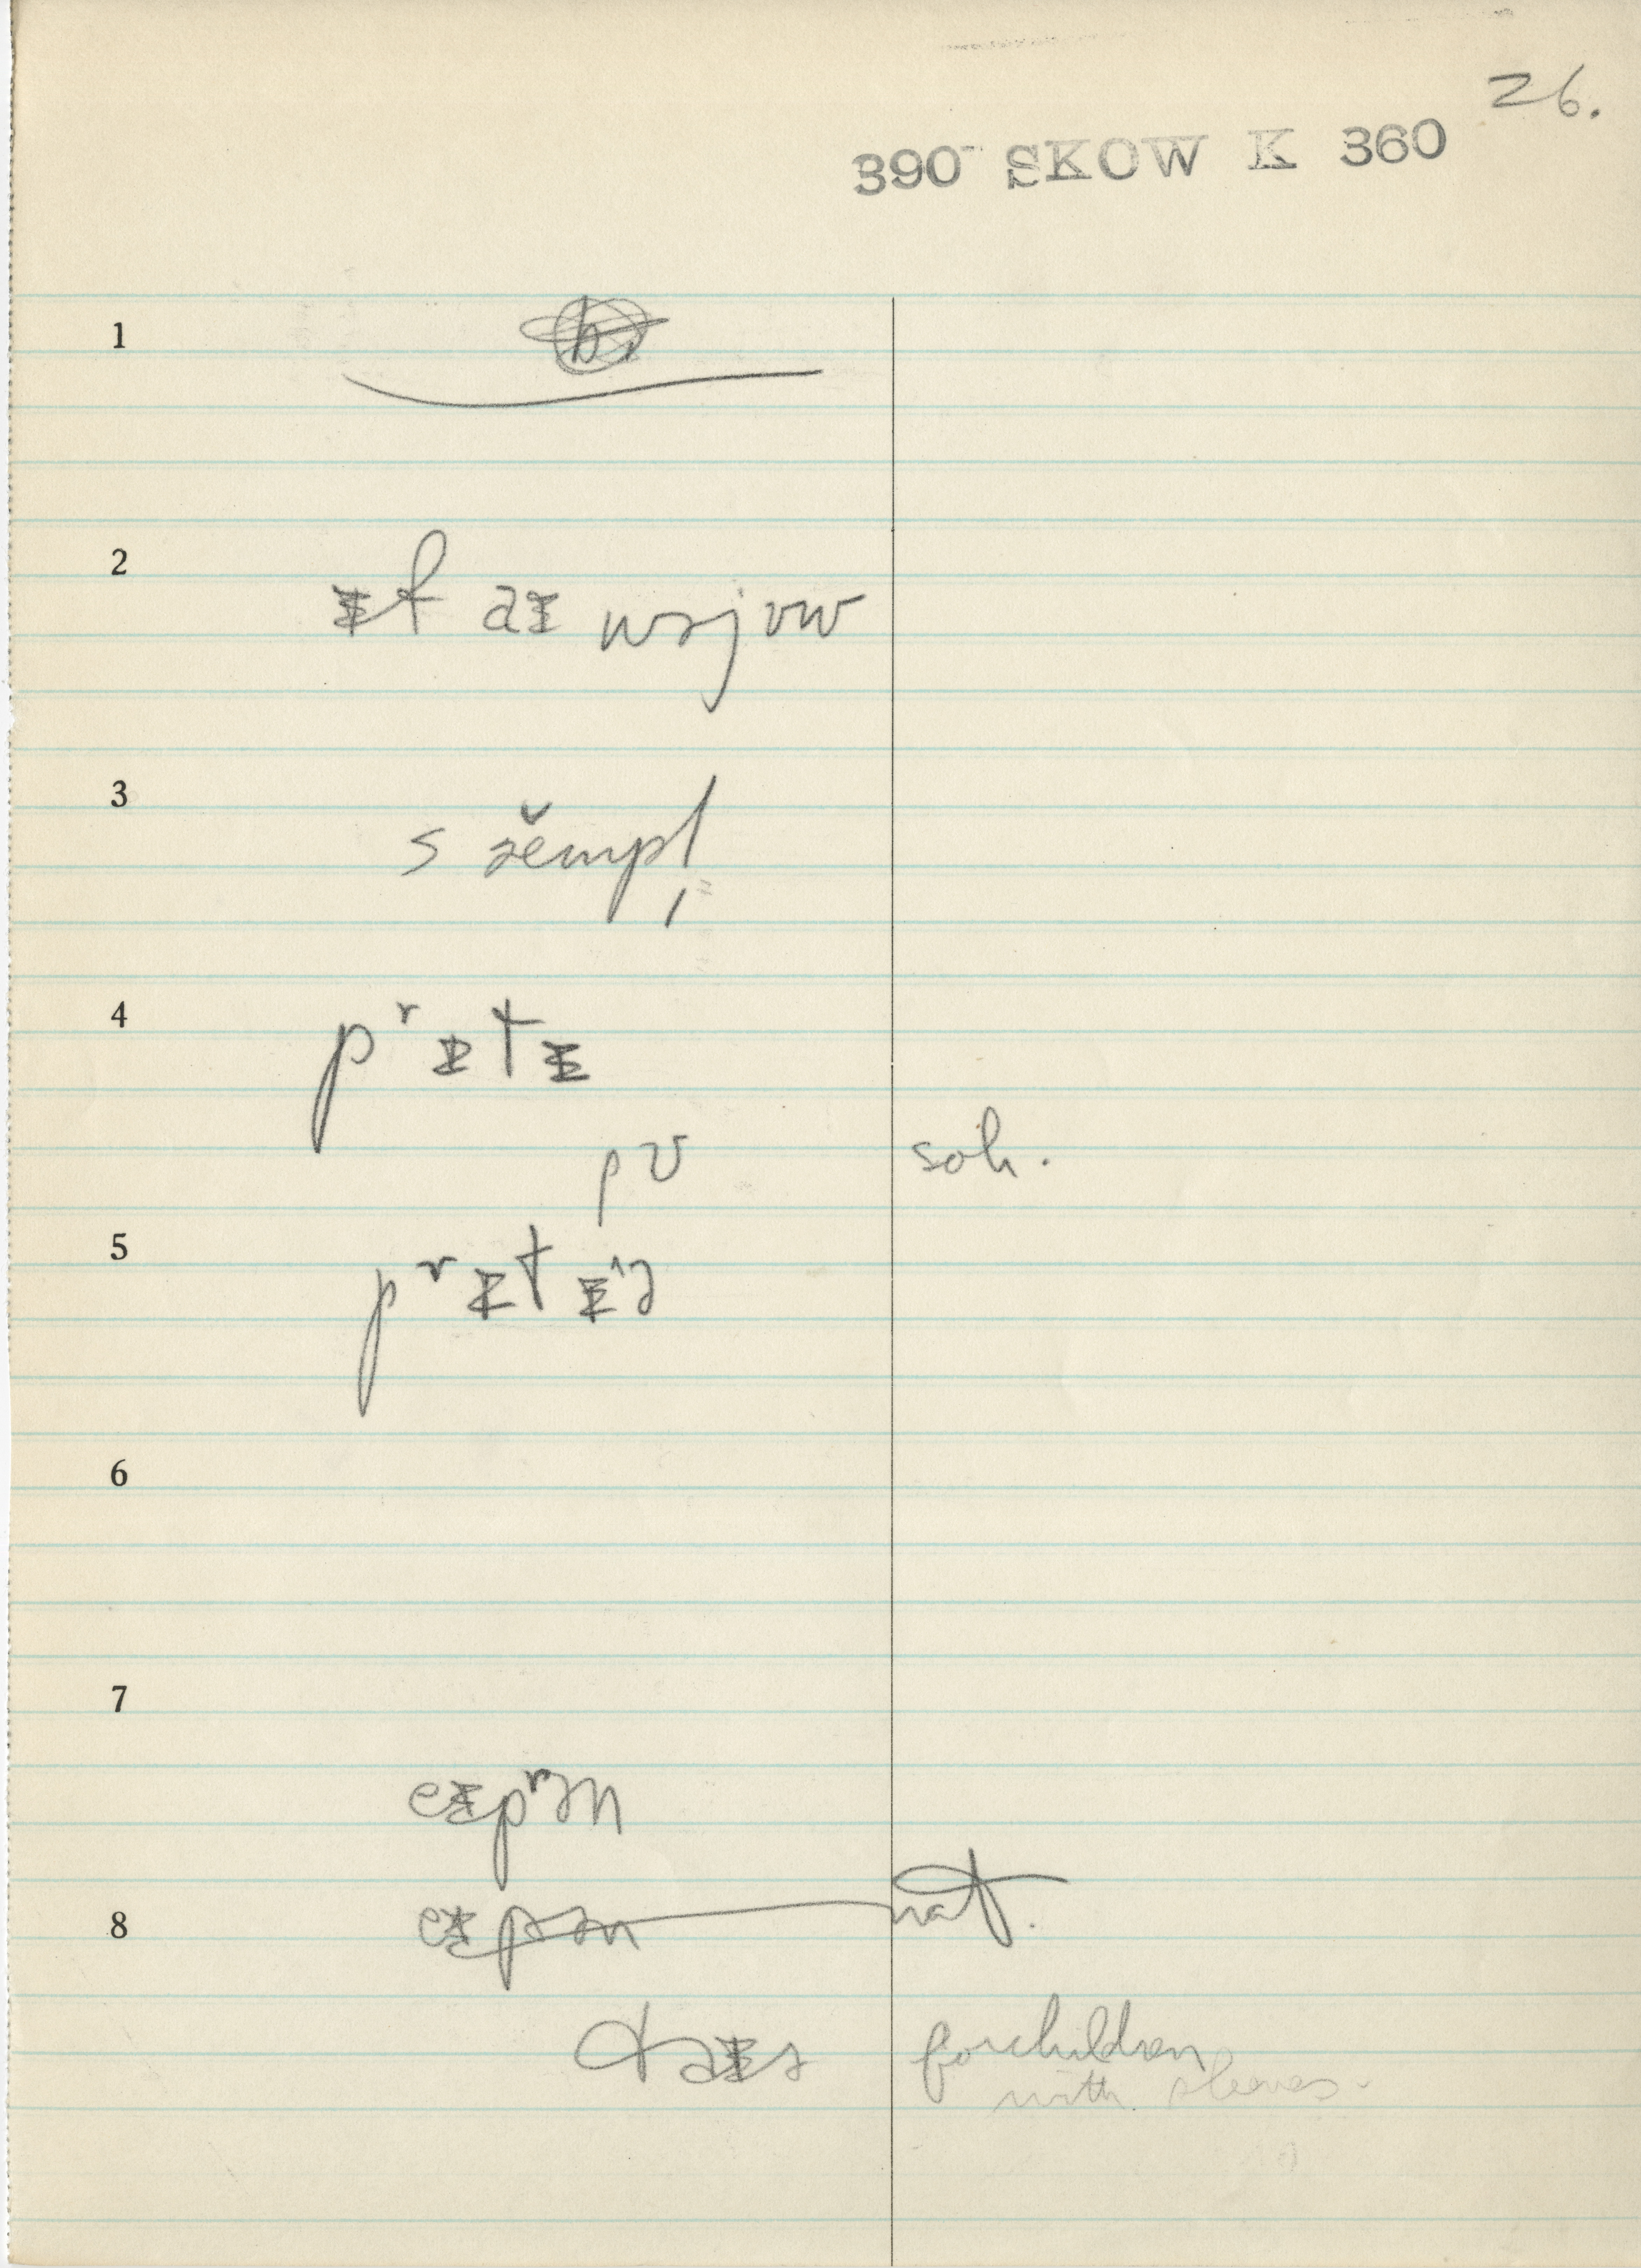 26.
390 SKOW K 360
1
2
ɪf aɪ wəjuw
3
4
pʳɪtɪ
pʊ
soh.
5
pʳɪtɪˈə
6
7
eɪpʳən
8
eɪpən
nat.
for children
with sleeves.